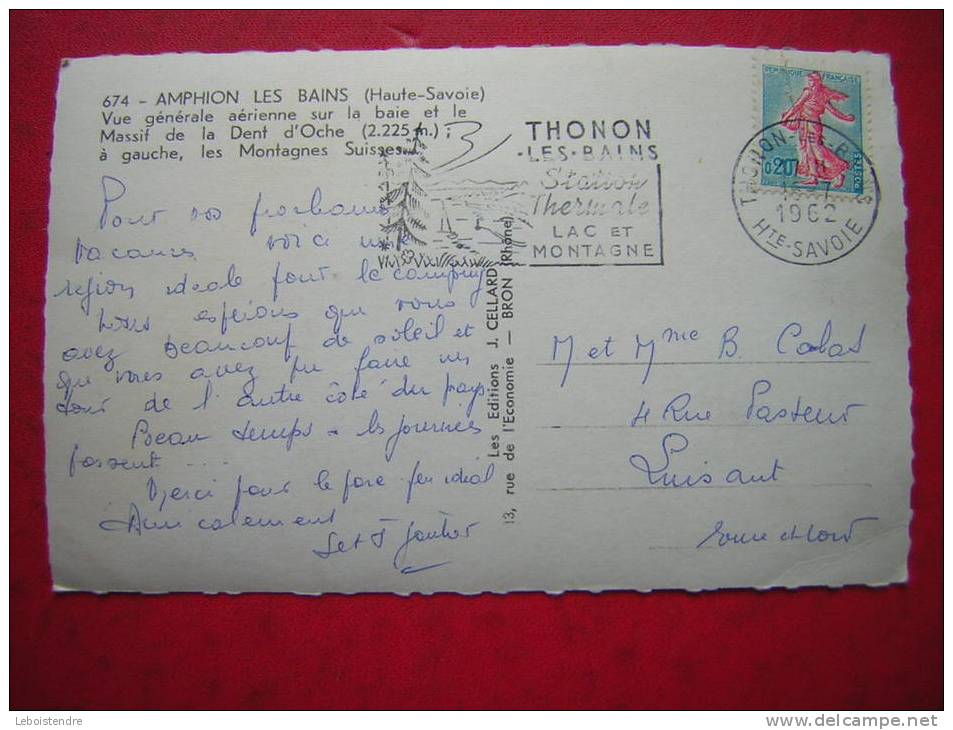 674 - AMPHION LES BAINS (Haute-Savoie)
Vue générale aérienne sur la baie et le
Massif de la Dent d'Oche (2.225 m.) ;
à gauche, les Montagnes Suisses.
Pour vos prochaines
vacances voici une
région idéale pour le camping
Nous espérons que vous
avez beaucoup de soleil et
que vous avez pu faire un
tour de l'autre côté du pays.
Beau temps - les journées
passent ....
Merci pour le
idéal
Amicalement
et J
Les Editions J. CELLARD
13, rue de l'Economie — BRON (Rhône)
THONON
-LES-BAINS
Station
Thermale
LAC ET
MONTAGNE
REPUBLIQUE FRANÇAISE
0,20
POSTES
THONON-LES-BAINS
1962
HTE-SAVOIE
M et Mme B. Calas
4 Rue Pasteur
Luisant
Eure et Loir
Leboistendre
www.delcampe.net